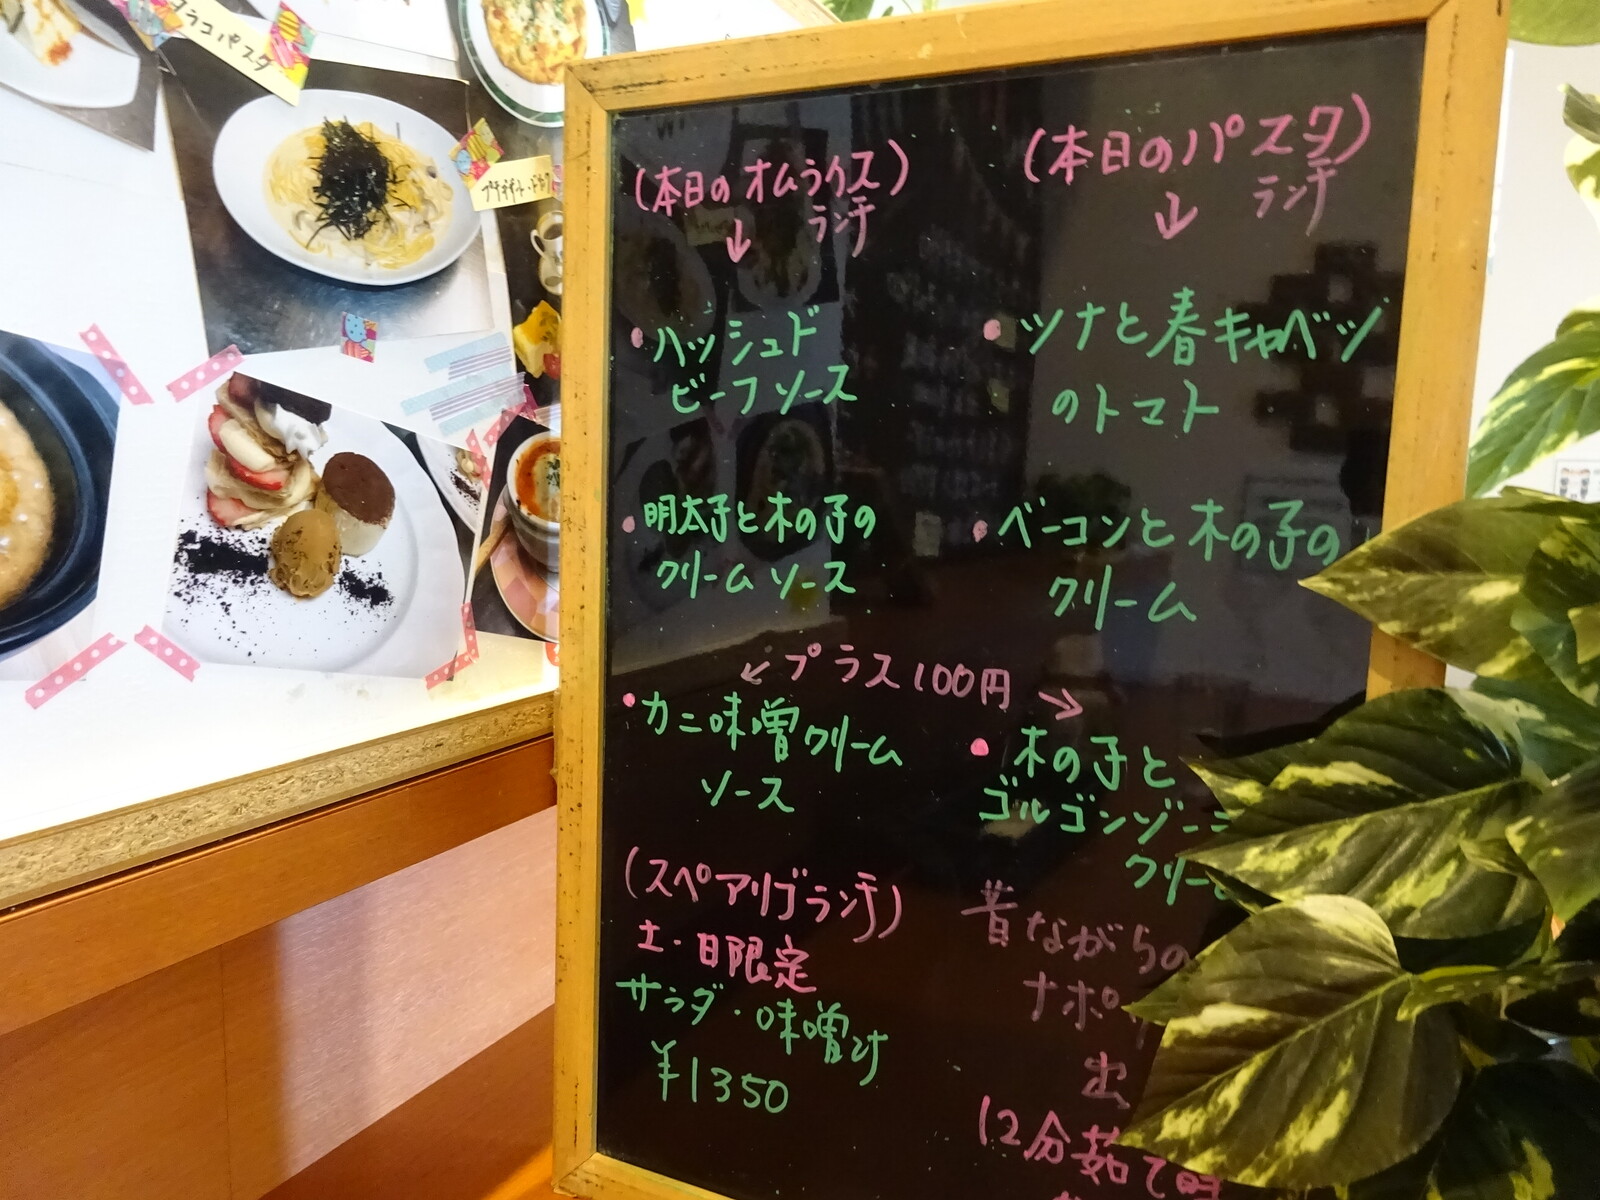 タラコパスタ
(本日のオムライス)
ランチ
↓
・ハッシュド
ビーフソース
・明太子と木の子の
クリームソース
(本日のパスタ)
ランチ
↓
・ツナと春キャベツ
のトマト
・ベーコンと木の子の
クリーム
↙プラス100円↘
・カニ味噌クリーム
ソース
・木の子と
ゴルゴンゾー
クリー
(スペアリブランチ)
土・日限定
サラダ・味噌汁
¥1350
昔ながらの
ナポリ
出
12分茹で